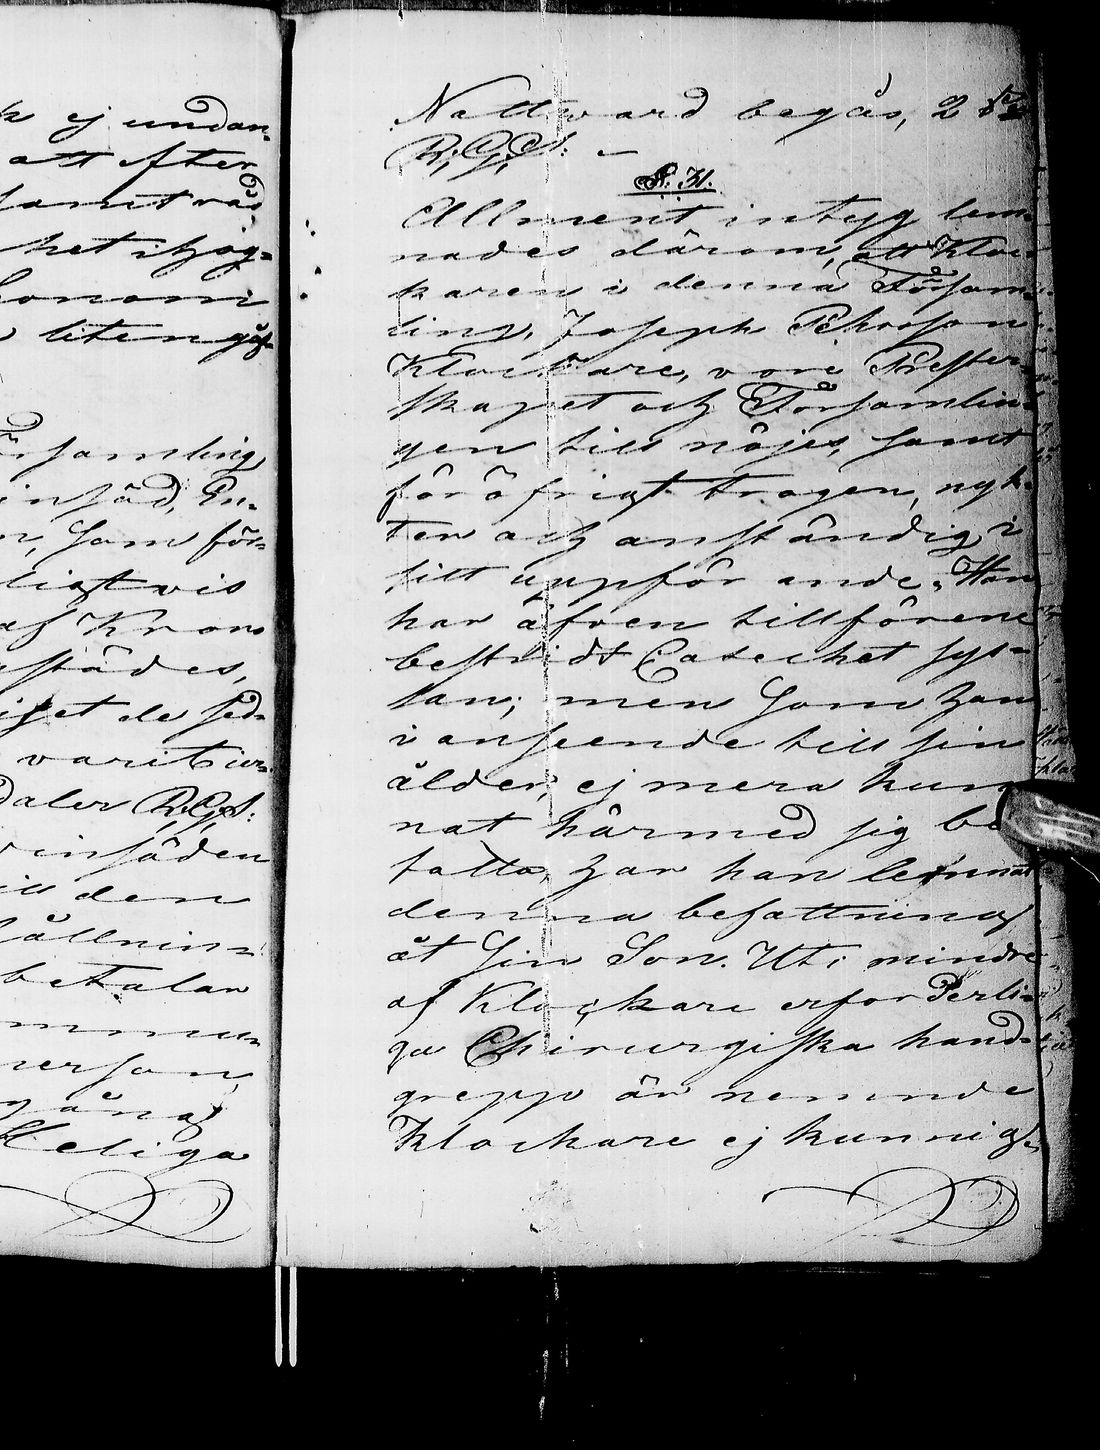 k ej undan-
att efter
samt råd
het i hög-
konomi
liten gås-
Församling
insöd, En-
n, Som för-
ligtvis
af Krono
städes,
iget de sed-
varit ur-
daler R:G:S:
vinsöden
ill den
hållnin-
betalar
mmu-
nerson
gång
Heliga
Nattward begås, 2 
R:G:S: –
§. 31.
Allment intyg lem-
nades därom, att Kloc-
karen i denna Försam-
ling, Joseph Pehrsson
Klockare, vore Prester-
skapet och Församlin-
gen till nöjes, samt
för öfrigt trogen, nyk-
ter och anständig i
sitt uppförande. Han
har äfven tillförene
bestridt Catechet sys-
lan; men Som han
i anseende till sin
ålder, ej mera kun-
nat härmed sig be-
fatta, har han lemnat
denna befattning
åt Sin Son. Uti mindre
af Klockare erforderli-
ga Chirurgiska hand-
grepp är nemnde
Klockare ej kunnig.